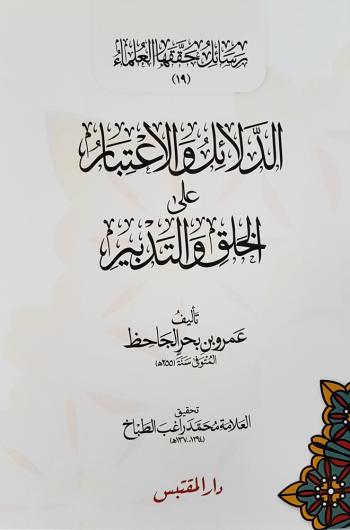 رسائل حققها العلماء
(١٩)
الدَّلائِلُ وَالاعْتِبَارُ
على
الخلقِ وَالتَدبِيرِ
تأليفُ
عَمرو بن بحر الجاحظ
المُتوَفى سَنَة (٢٥٥هـ)
تحقيق
العلامة محمد راغب الطباخ
(١٢٩٤-١٣٧٠هـ)
دار المقتبس